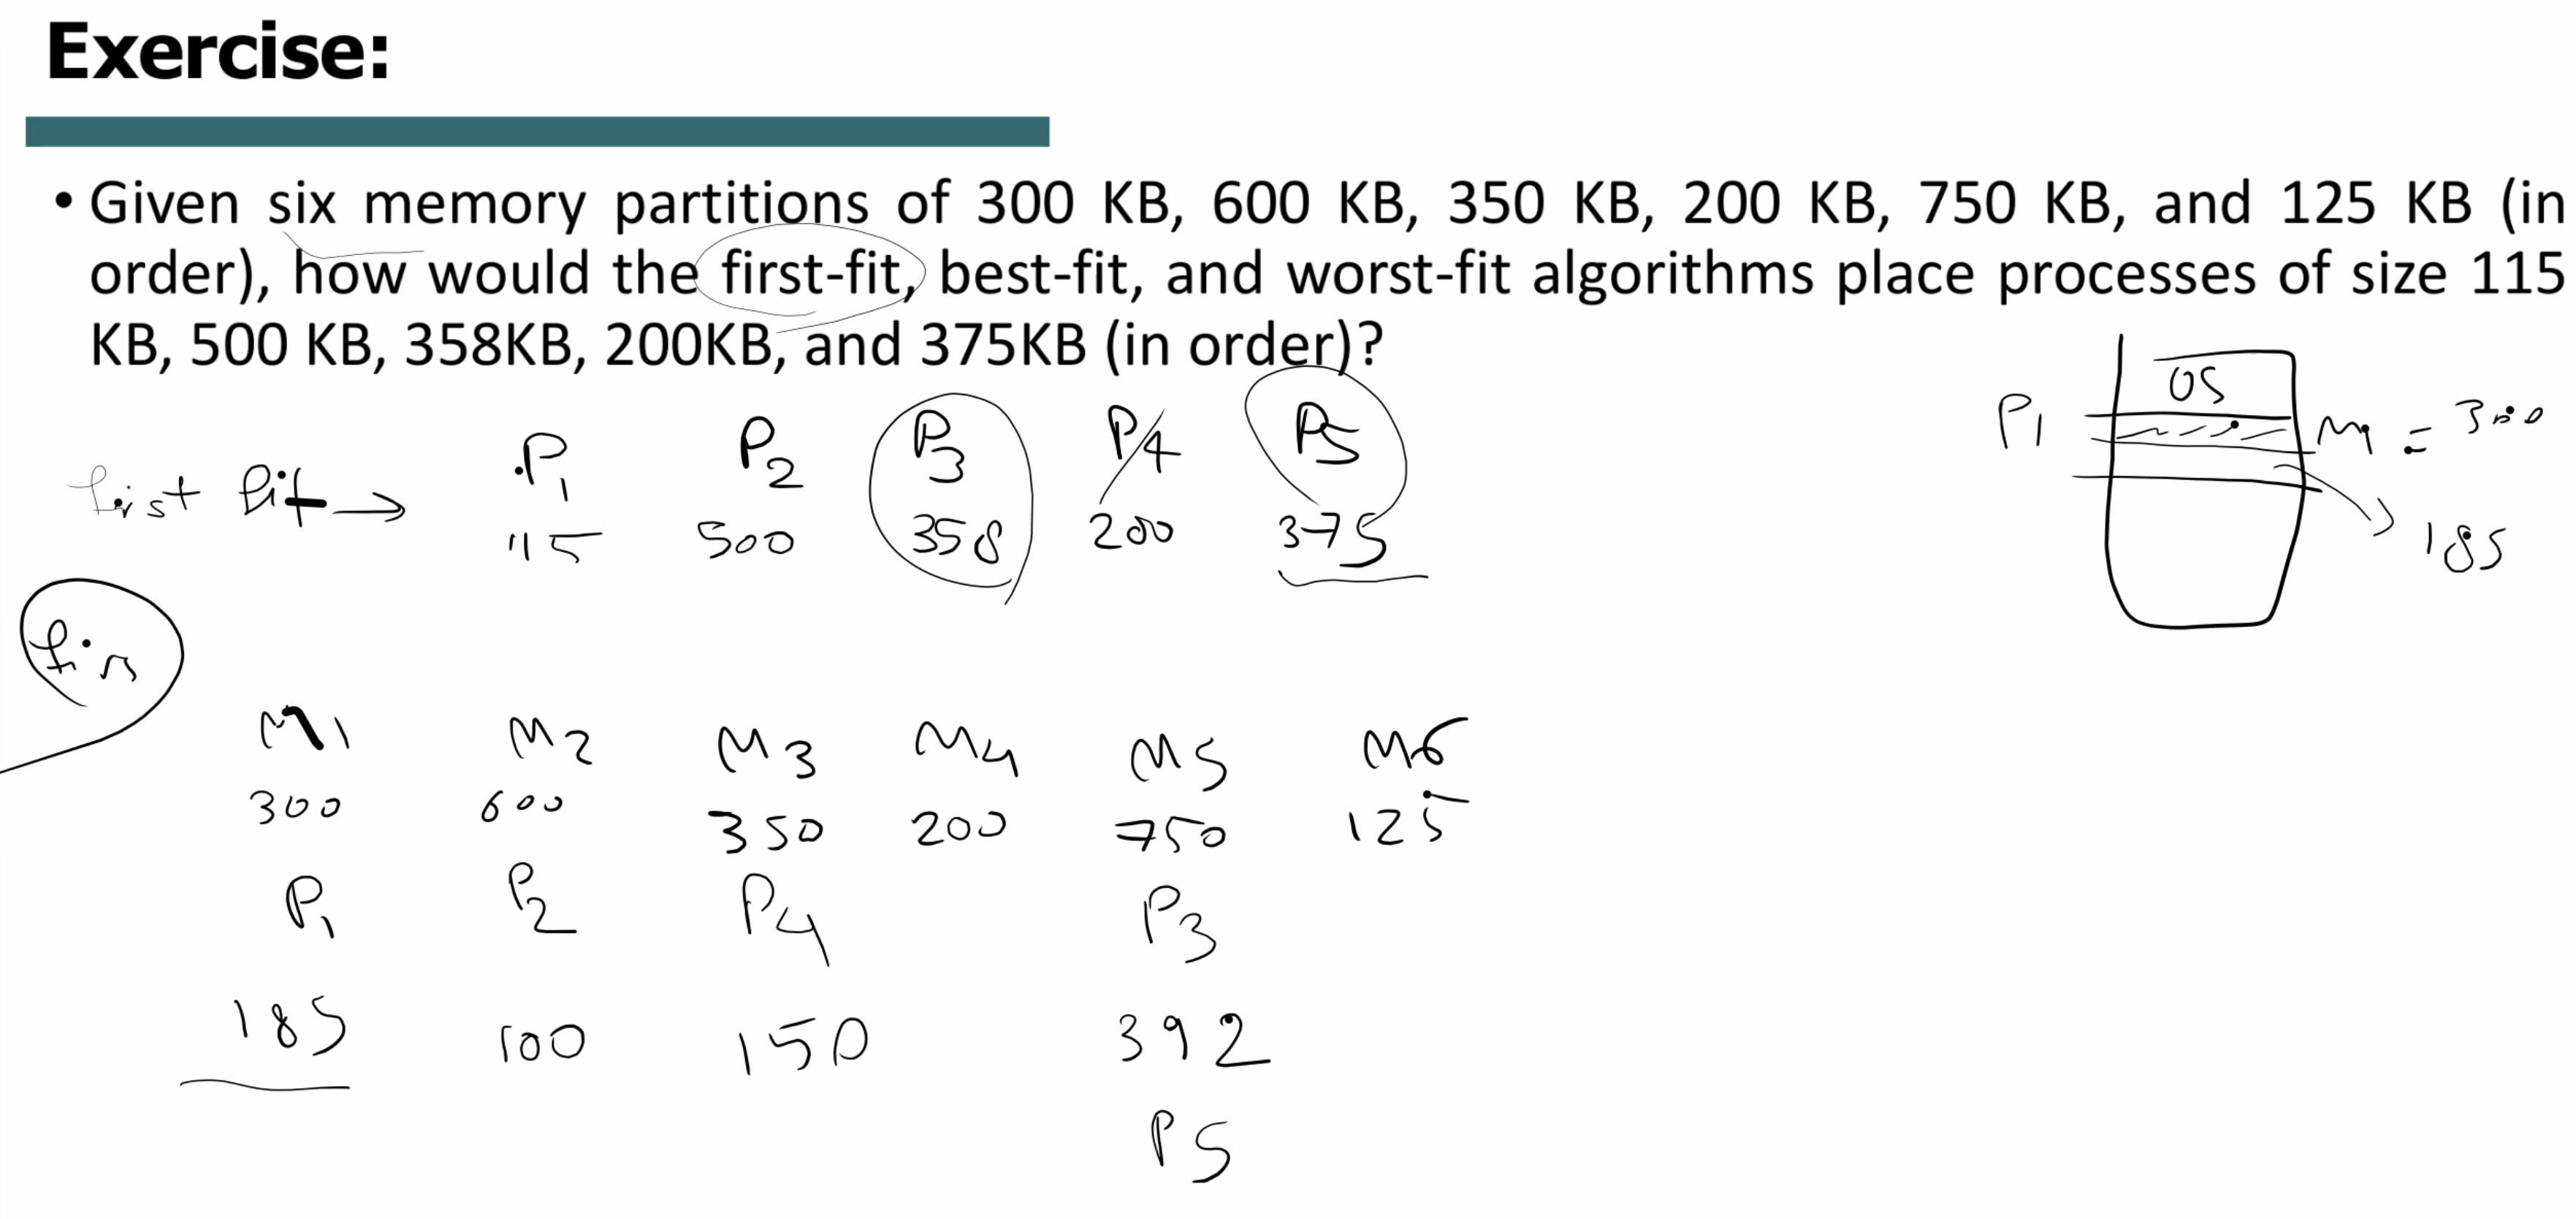 Exercise:
• Given six memory partitions of 300 KB, 600 KB, 350 KB, 200 KB, 750 KB, and 125 KB (in
order), how would the first-fit, best-fit, and worst-fit algorithms place processes of size 115
KB, 500 KB, 358KB, 200KB, and 375KB (in order)?
OS
P1 M1 = 300
185
first fit → P1 P2 P3 P4 P5
115 500 358 200 375
fir
M1 M2 M3 M4 M5 M6
300 600 350 200 750 125
P1 P2 P4 P3
185 100 150 392
P5